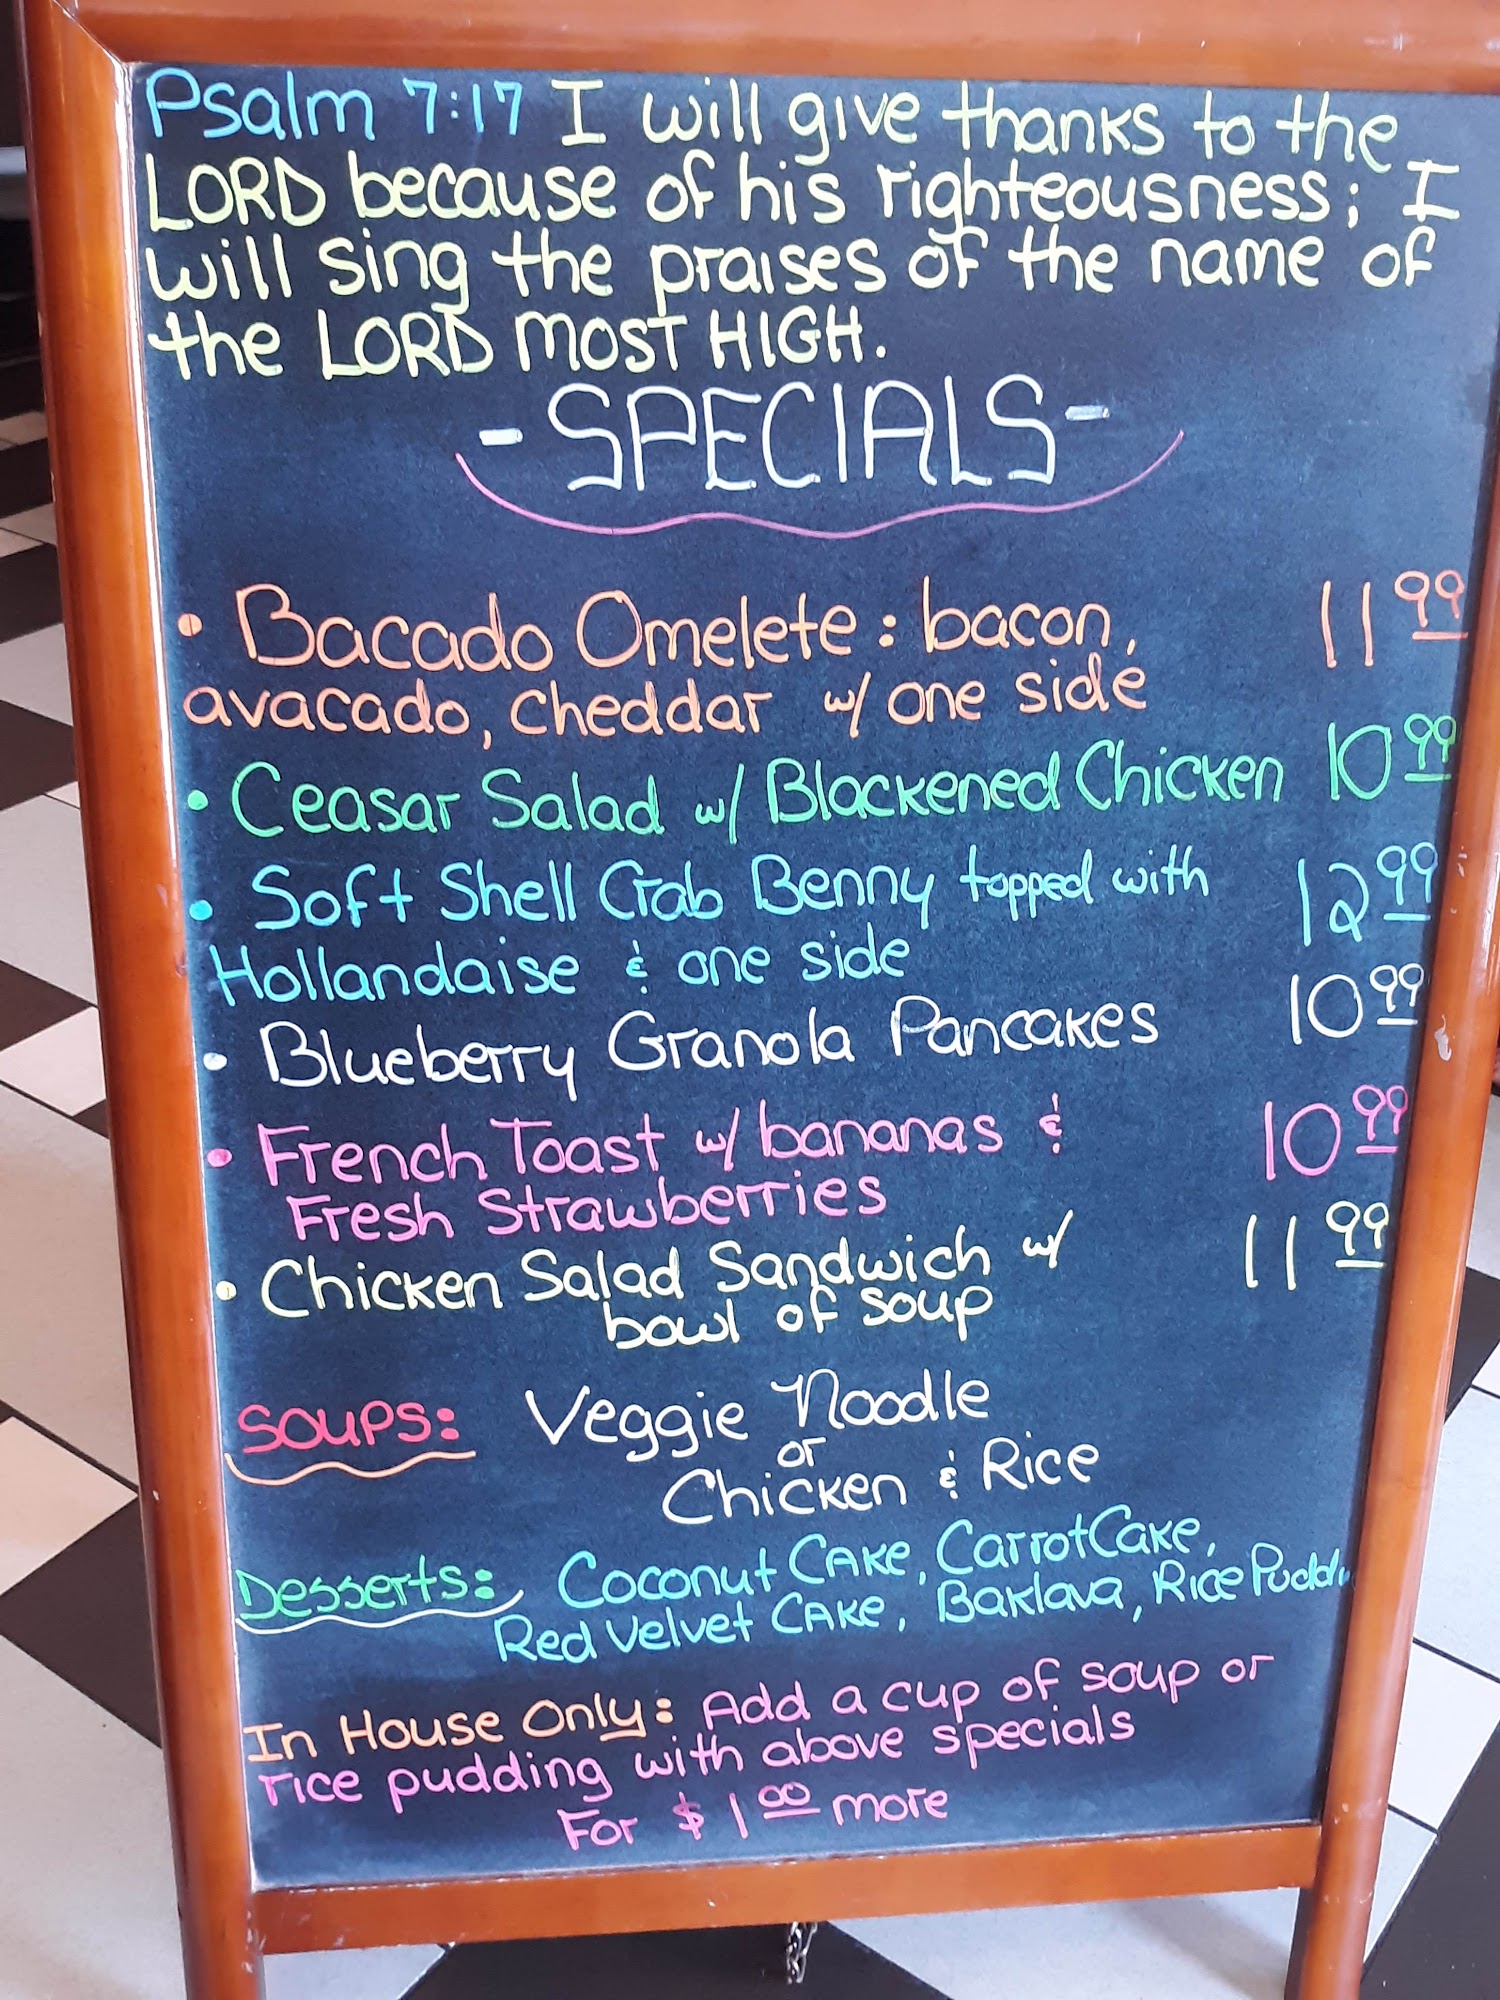 Psalm 7:17 I will give thanks to the
LORD because of his righteousness; I
will sing the praises of the name of
the LORD MOST HIGH.
-SPECIALS-
• Bacado Omelete: bacon, 11 99
avacado, cheddar w/ one side
• Ceasar Salad w/ Blackened Chicken 10 99
• Soft Shell Crab Benny topped with 12 99
Hollandaise & one side
• Blueberry Granola Pancakes 10 99
• French Toast w/ bananas & 10 99
Fresh Strawberries
• Chicken Salad Sandwich w/ 11 99
bowl of soup
SOUPS: Veggie Noodle
or
Chicken & Rice
Desserts: Coconut CAKE, Carrot Cake,
Red Velvet CAKE, Baklava, Rice Puddin
In House Only: Add a cup of soup or
rice pudding with above specials
For $1 00 more